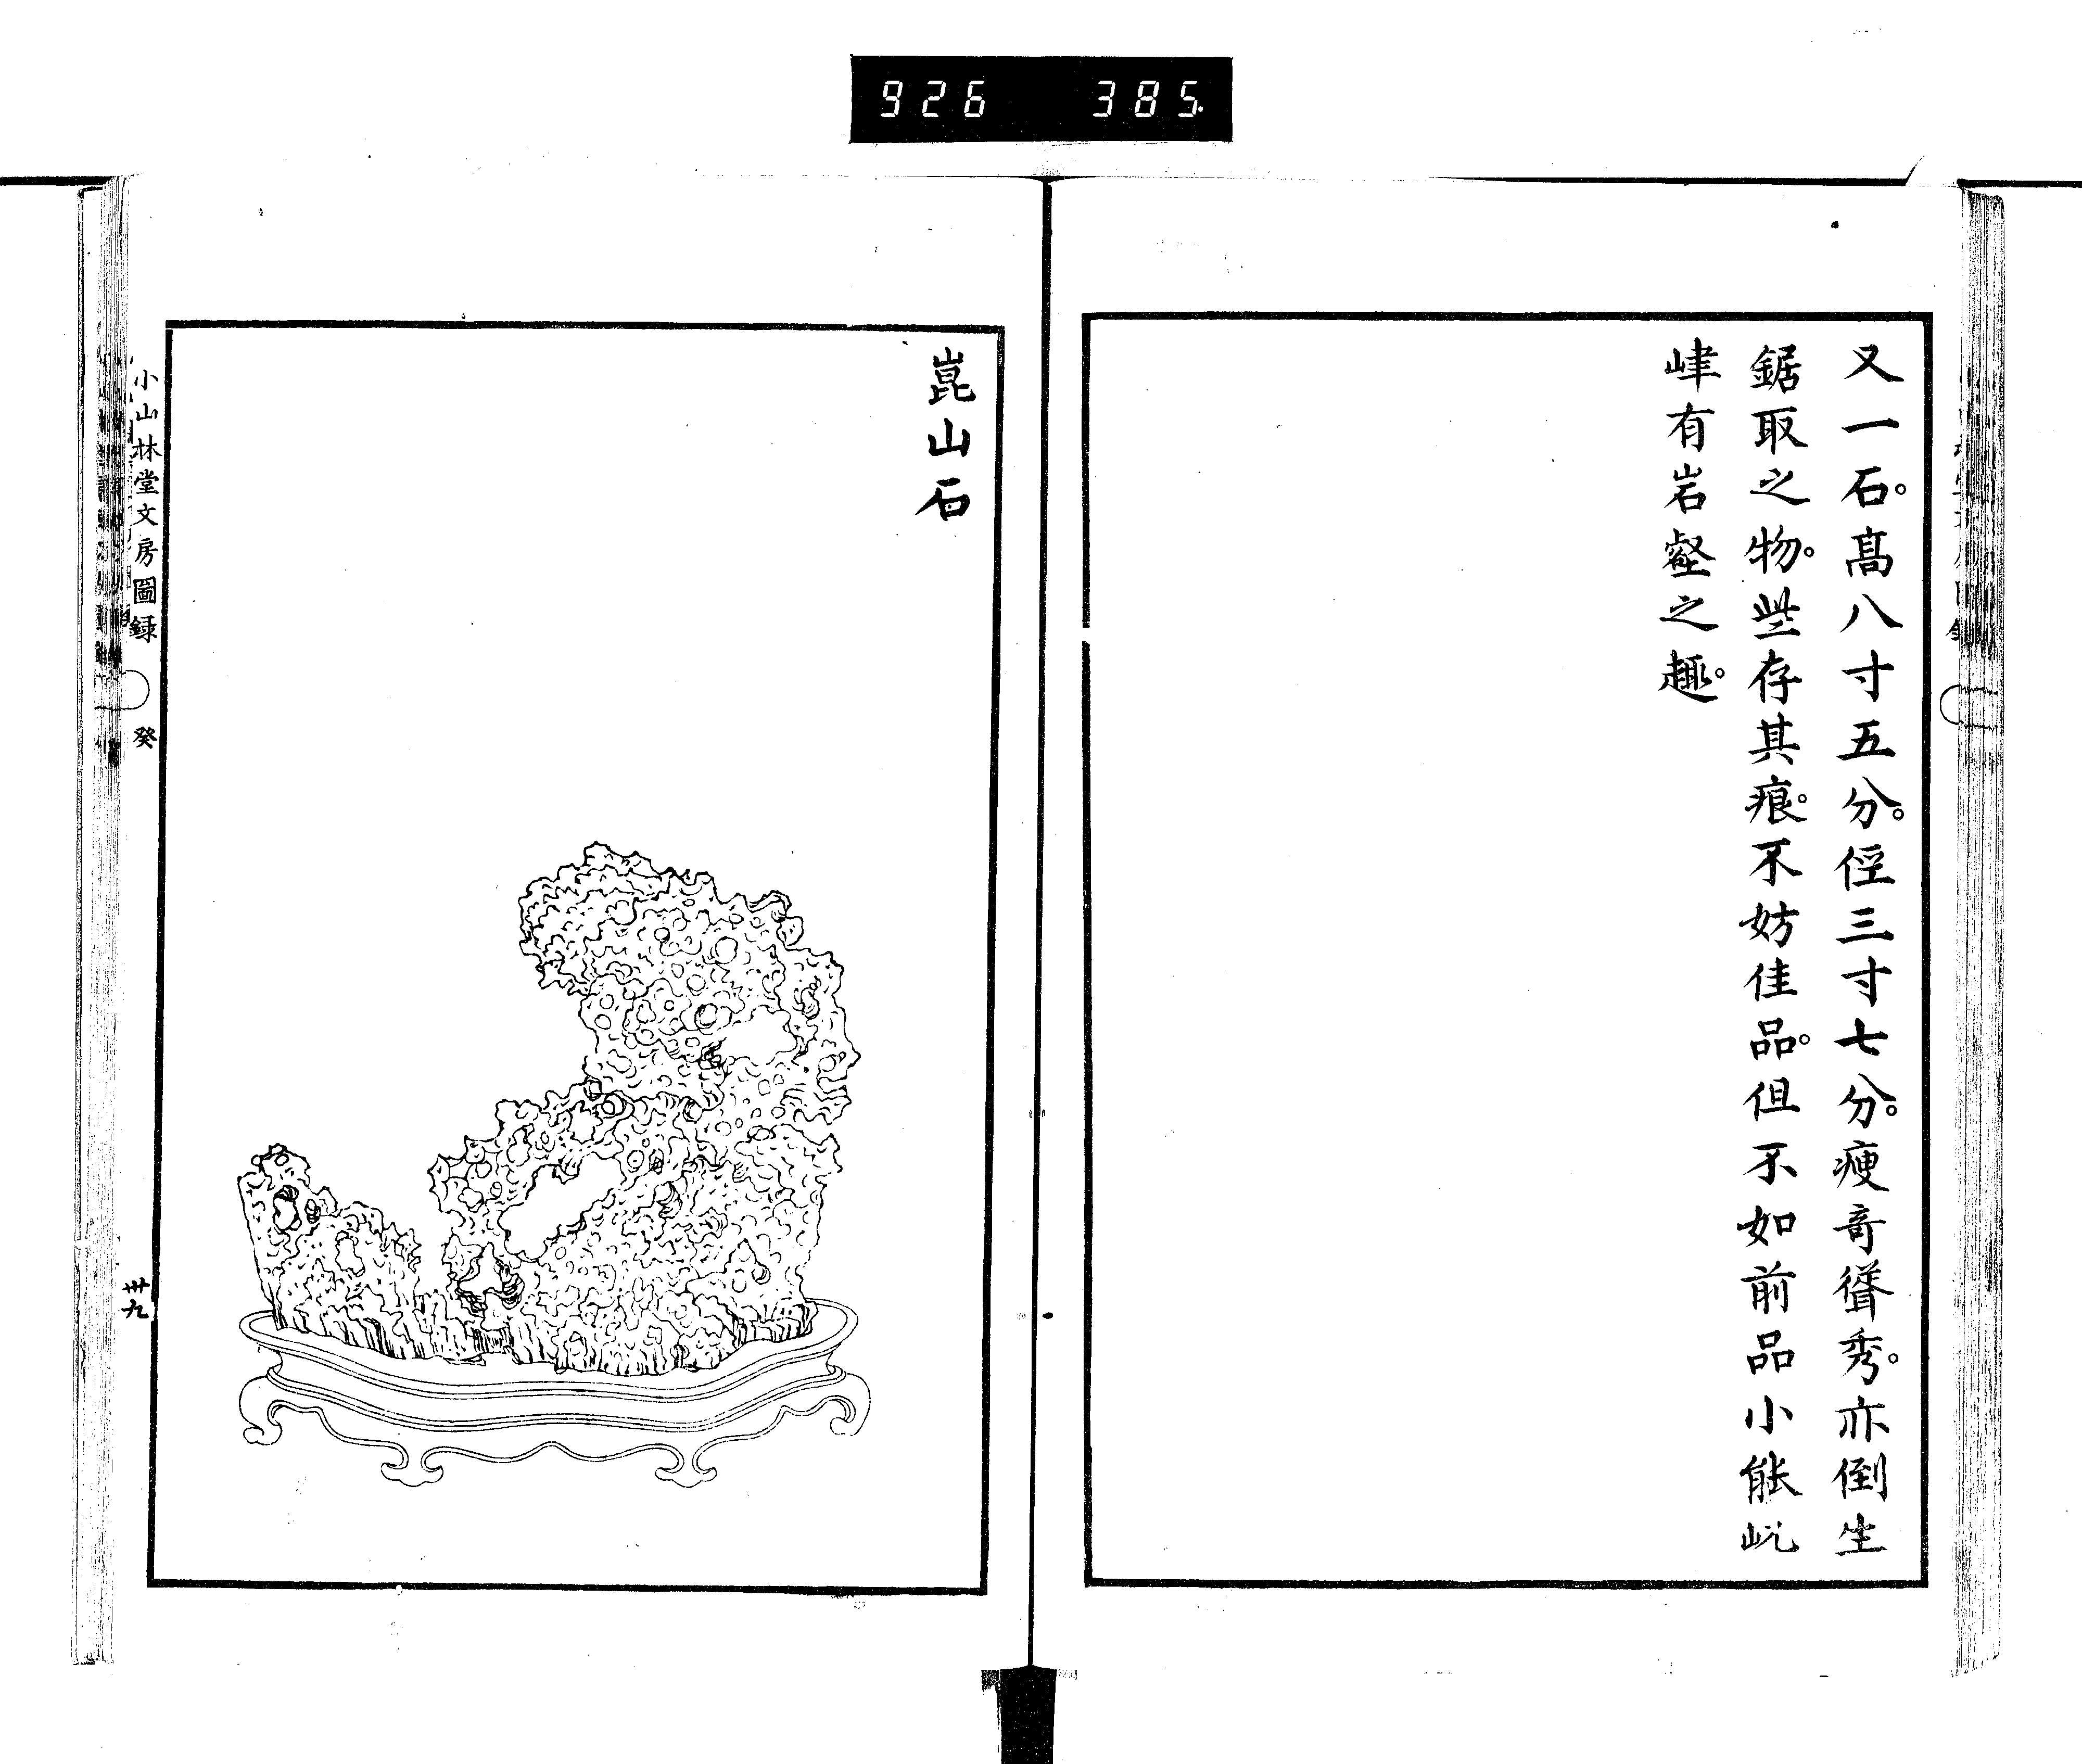 926 385
又一石。高八寸五分。徑三寸七分。瘦奇聳秀。亦倒生
鋸取之物。些存其痕。不妨佳品。但不如前品小能屹
峍有岩壑之趣。
崑山石
小山林堂文房圖録 癸
卅九